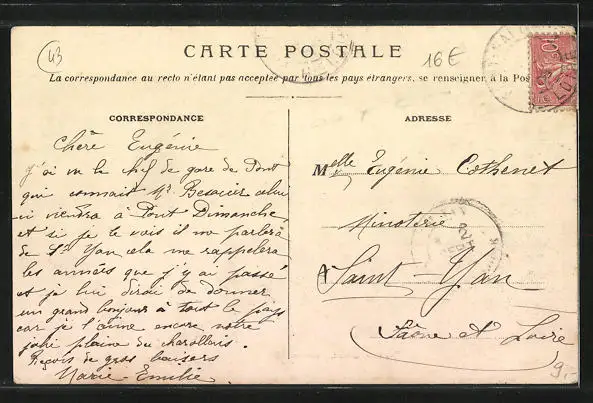 43
CARTE POSTALE
16E
La correspondance au recto n'étant pas acceptée par tous les pays étrangers, se renseigner à la Pos
CORRESPONDANCE
Chère Eugénie
J'ai vu le chef de gare de Pont
qui connait Mr celui
ci viendra à Pont Dimanche,
et si je le vois il me parlera
de St Yan, cela me rappelera
les années que j'y ai passé
et je lui dirai de donner
un grand bonjour à tout le pays
car je l'aime encore notre
jolie plaine du charollais.
Reçois de gros baisers
Marie-Emilie
ADRESSE
Melle Eugénie Cothenet
Minoterie
A Saint-Yan
Saône et Loire
9.-
10